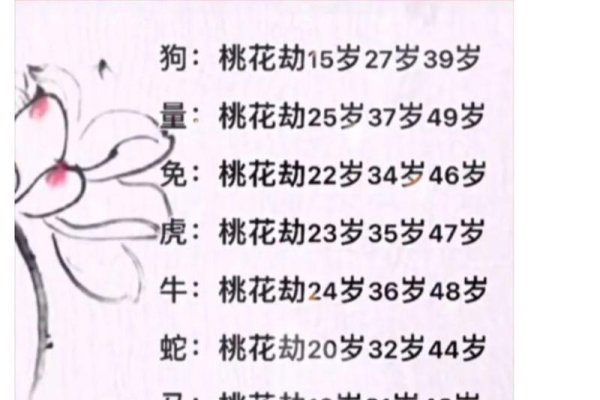 狗：桃花劫15岁27岁39岁
量：桃花劫25岁37岁49岁
免：桃花劫22岁34岁46岁
虎：桃花劫23岁35岁47岁
牛：桃花劫24岁36岁48岁
蛇：桃花劫20岁32岁44岁